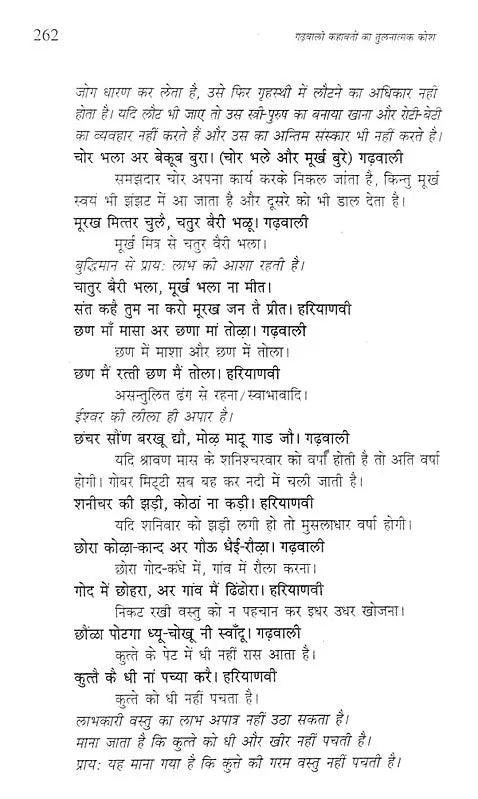 262
गढ़वाली कहावतों का तुलनात्मक कोश
जोग धारण कर लेता है, उसे फिर गृहस्थी में लौटने का अधिकार नहीं
होता है। यदि लौट भी जाए तो उस स्त्री-पुरुष का बनाया खाना और रोटी-बेटी
का व्यवहार नहीं करते हैं और उस का अन्तिम संस्कार भी नहीं करते है।
चोर भला अर बेकूब बुरा। (चोर भले और मूर्ख बुरे) गढ़वाली
समझदार चोर अपना कार्य करके निकल जांता है, किन्तु मूर्ख
स्वयं भी झंझट में आ जाता है और दूसरे को भी डाल देता है।
मूरख मित्तर चुलै, चतुर बैरी भळू। गढ़वाली
मूर्ख मित्र से चतुर वैरी भला।
बुद्धिमान से प्राय: लाभ की आशा रहती है।
चातुर बैरी भला, मूर्ख भला ना मीत।
संत कहै तुम ना करो मूरख जन तै प्रीत। हरियाणवी
छण माँ मासा अर छणा मां तोळा। गढ़वाली
छण में माशा और छण में तोला।
छण मैं रत्ती छण मैं तोला। हरियाणवी
असन्तुलित ढंग से रहना/स्वाभावादि।
ईश्वर की लीला ही अपार है।
छंचर सौंण बरखू द्यौ, मोळ माटू गाड जौ। गढ़वाली
यदि श्रावण मास के शनिश्चरवार को वर्षा होती है तो अति वर्षा
होगी। गोबर मिट्टी सब बह कर नदी में चली जाती है।
शनीचर की झड़ी, कोठां ना कड़ी। हरियाणवी
यदि शनिवार को झड़ी लगी हो तो मुसलाधार वर्षा होगी।
छोरा कोळा-कान्द अर गौऊ धैई-रौळा। गढ़वाली
छोरा गोद-कंधे में, गांव में रौला करना।
गोद में छोहरा, अर गांव मैं ढिंढोरा। हरियाणवी
निकट रखी वस्तु को न पहचान कर इधर उधर खोजना।
छौंळा पोटगा ध्यू-चोखू नी स्वाँदू। गढ़वाली
कुत्ते के पेट में धी नहीं रास आता है।
कुत्तै कै धी नां पच्या करै। हरियाणवी
कुत्ते को धी नहीं पचता है।
लाभकारी वस्तु का लाभ अपात्र नहीं उठा सकता है।
माना जाता है कि कुत्ते को धी और खीर नहीं पचती है।
प्राय: यह माना गया है कि कुत्ते की गरम वस्तु नहीं पचती है।